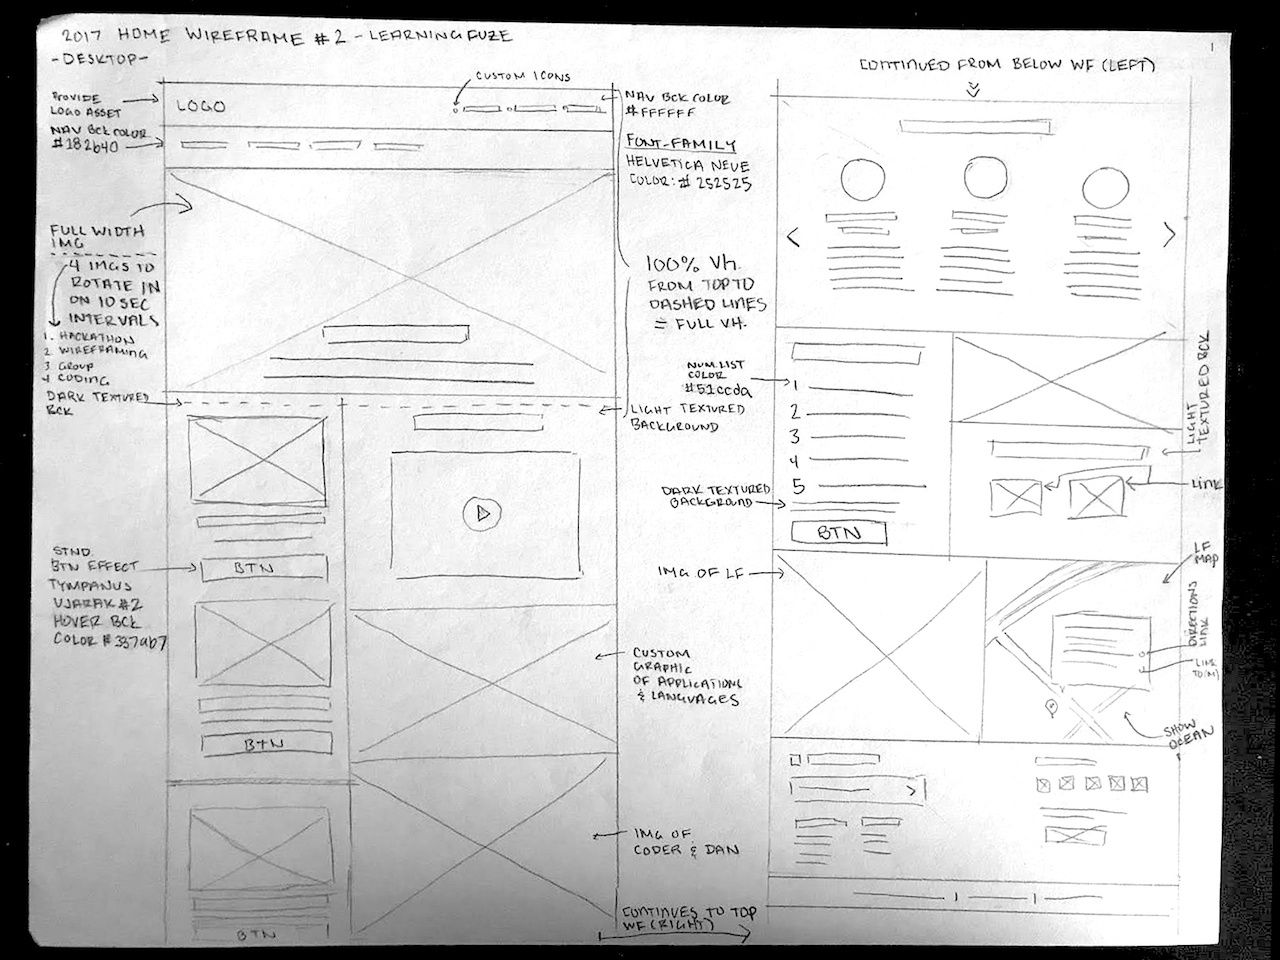 2017 HOME WIREFRAME #2 - LEARNINGFUZE
-DESKTOP-
1
CONTINUED FROM BELOW WF (LEFT)
CUSTOM ICONS
PROVIDE
LOGO ASSET
LOGO
NAV BCK COLOR
#FFFFFF
NAV BCK COLOR
#182b40
FONT-FAMILY
HELVETICA NEUE
COLOR: #252525
FULL WIDTH
IMG
4 IMGS TO
ROTATE IN
ON 10 SEC
INTERVALS
1. HACKATHON
2 WIREFRAMING
3 GROUP
4 CODING
DARK TEXTURED
BCK
100% Vh.
FROM TOP TO
DASHED LINES
= FULL VH.
LIGHT TEXTURED
BACKGROUND
STND.
BTN EFFECT
TYMPANUS
UJARAK #2
HOVER BCK
COLOR #337ab7
BTN
BTN
BTN
CUSTOM
GRAPHIC
OF APPLICATIONS
& LANGUAGES
IMG OF
CODER & DAN
CONTINUES TO TOP
WF (RIGHT)
<
>
NUM. LIST
COLOR
#51ccda
1
2
3
4
5
DARK TEXTURED
BACKGROUND
BTN
LIGHT
TEXTURED BCK
LINK
IMG OF LF
LF
MAP
DIRECTIONS
LINK
LINK
TO (M)
SHOW
OCEAN
>